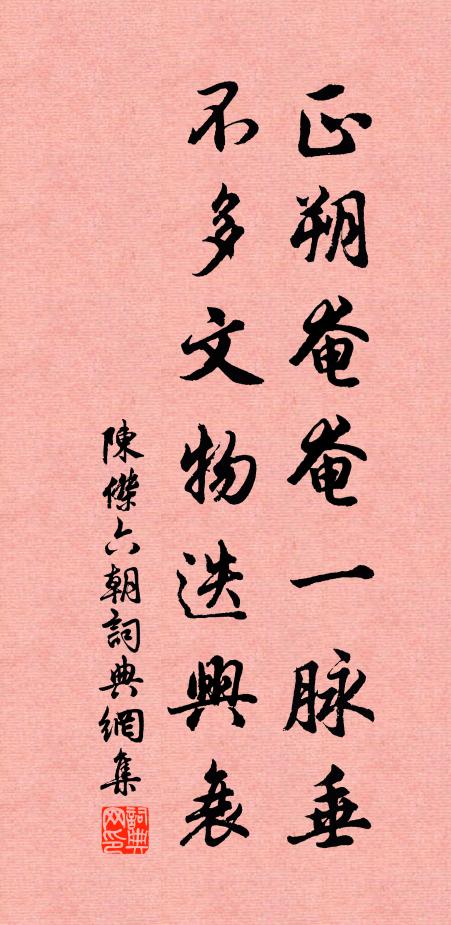 正朔奄奄一脉垂
不多文物迭興衰
陳傑六朝詞典網集
詞典网印